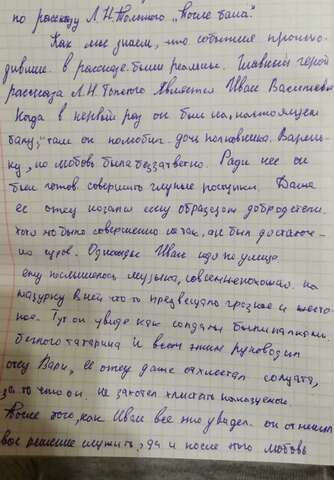 по рассказу Л.Н.Толстого „После бала".
Как мы знаем, что события происхо-
дившие в рассказе были реальны. Главный герой
рассказа Л.Н Толстого является Иван Васильевич
Когда в первый раз он был на, настоящем
балу, там он полюбил дочь полковника. Вареньку
ку, но любовь была беззаветно. Ради нее он
был готов совершить глупые поступки. Даже
ее отец казался ему образцом добродетели.
хотя но было совершенно не так, он был достаточ-
но суров. Однажды Иван идя по улице
ему послышалась музыка, совсем непохожая на
мазурку в ней что то предвещало грозное и жесто-
кое. Тут он увидел как солдаты били палками
беглого татарина и всем этим руководил
отец Вари, ее отец даже отхлестал солдата,
за то что он не захотел хлестать наказуемого.
После того, как Иван все это увидел он отменил
свое решение служить, да и после этого любовь